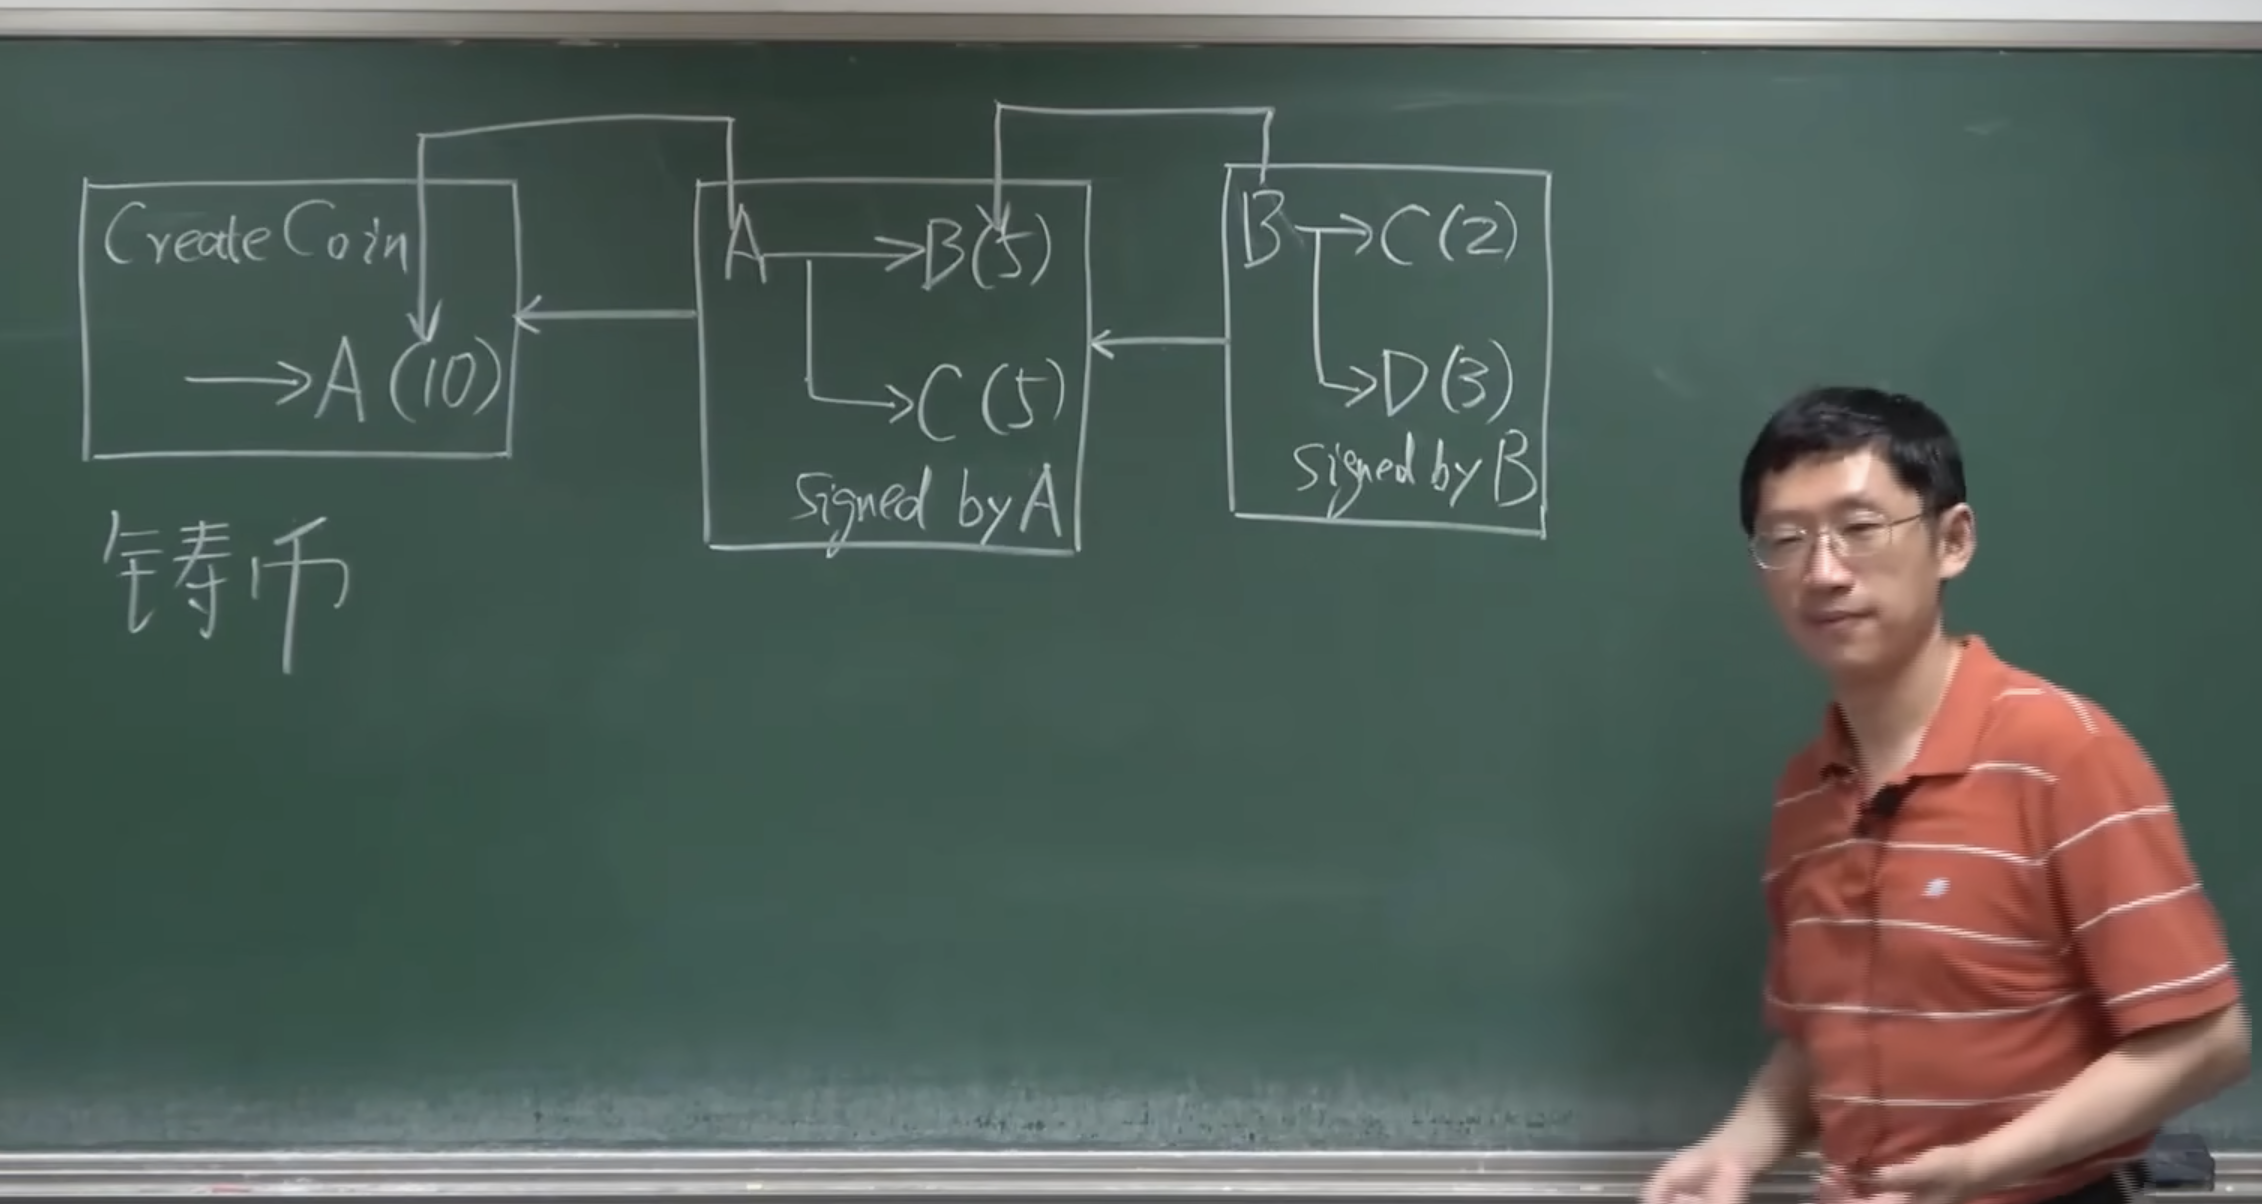 CreateCoin
→A(10)
铸币
A→B(5)
→C(5)
signed by A
B→C(2)
→D(3)
signed by B